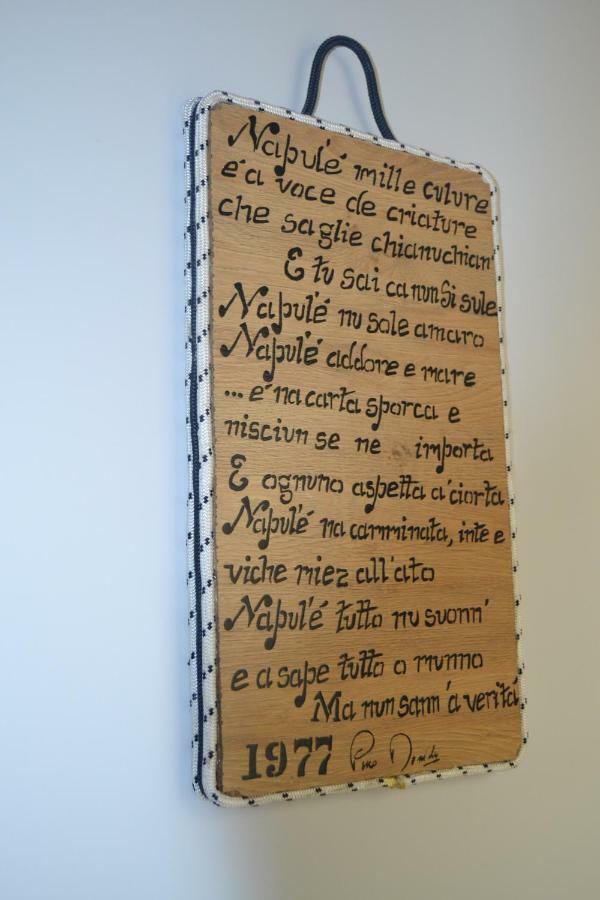 Napul'é mille culure
é a voce de criature
che saglie chianuchian'
E tu sai ca nun si sule
Napul'é nu sole amaro
Napul'é addore e mare
... é na carta sporca e
nisciun se ne importa
E ognuno aspetta a' ciorta
Napul'é na camminata, inte e
viche miez all'ato
Napul'é tutto nu suonn'
e a sape tutto o munno
Ma nun sann' a verità
1977 Pino Daniele